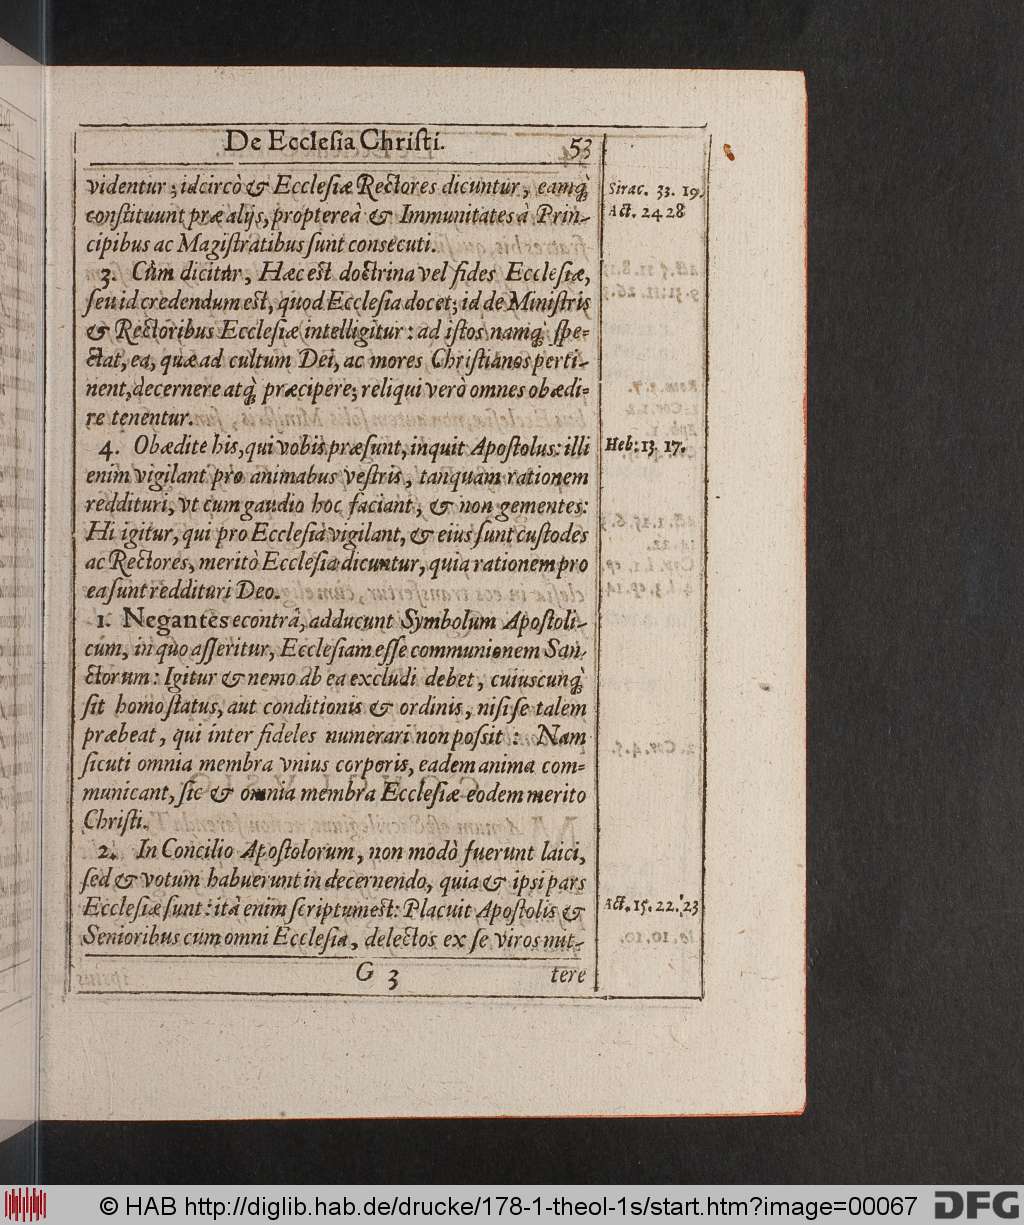 De Ecclesia Christi. 53
videntur; idcircò & Ecclesiæ Rectores dicuntur, eamq́;
constituunt præ alijs, proptereà & Immunitates à Prin-
cipibus ac Magistratibus sunt consecuti.
Sirac. 33. 19.
Act. 24 28
3. Cùm dicitur, Hæc est doctrina vel fides Ecclesiæ,
seu id credendum est, quod Ecclesia docet; id de Ministris
& Rectoribus Ecclesiæ intelligitur: ad istos namq́; spe-
ctat, ea, quæ ad cultum Dei, ac mores Christianos perti-
nent, decernere atq́; præcipere; reliqui verò omnes obædi-
re tenentur.
4. Obædite his, qui vobis præsunt, inquit Apostolus: illi
Heb: 13. 17.
enim vigilant pro animabus vestris, tanquam rationem
reddituri, vt cum gaudio hoc faciant, & non gementes:
Hi igitur, qui pro Ecclesia vigilant, & eius sunt custodes
ac Rectores, meritò Ecclesia dicuntur, quia rationem pro
ea sunt reddituri Deo.
1. Negantes econtrà, adducunt Symbolum Apostoli-
cum, in quo asseritur, Ecclesiam esse communionem San-
ctorum: Igitur & nemo ab ea excludi debet, cuiuscunq́;
sit homo status, aut conditionis & ordinis, nisi se talem
præbeat, qui inter fideles numerari non possit: Nam
sicuti omnia membra vnius corporis, eadem anima com-
municant, sic & omnia membra Ecclesiæ eodem merito
Christi.
2. In Concilio Apostolorum, non modò fuerunt laici,
sed & votum habuerunt in decernendo, quia & ipsi pars
Ecclesiæ sunt: ità enim scriptum est: Placuit Apostolis &
Act. 15. 22. 23
Senioribus cum omni Ecclesia, delectos ex se viros mit-
G 3 tere
© HAB http://diglib.hab.de/drucke/178-1-theol-1s/start.htm?image=00067 DFG